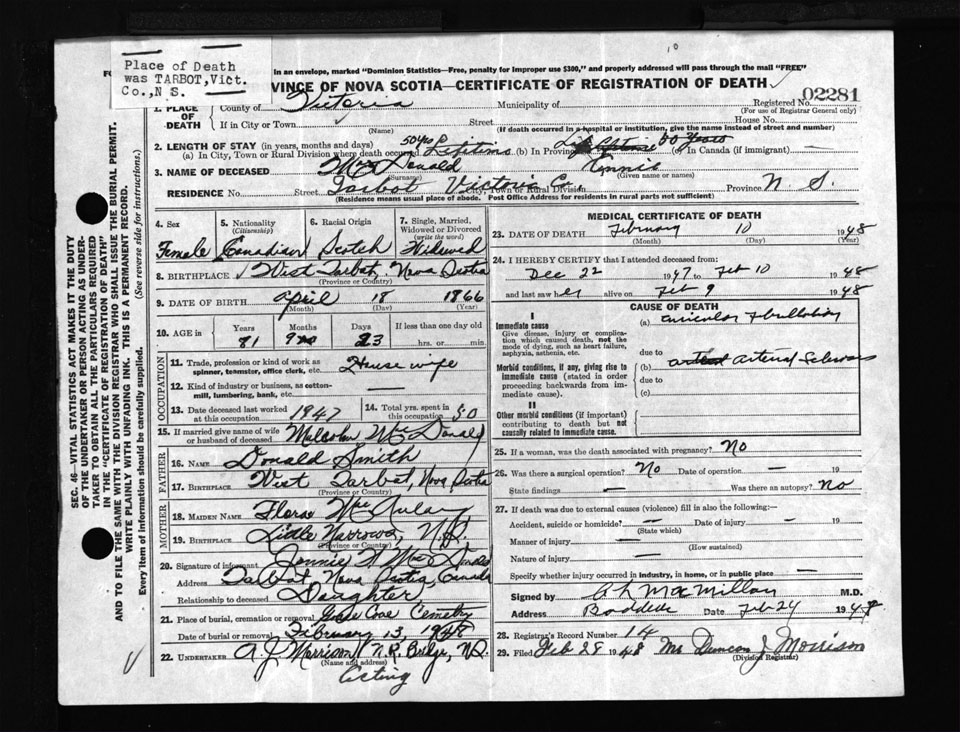 Place of Death
was TARBOT,Vict.
Co.,N S.
in an envelope, marked "Dominion Statistics—Free, penalty for improper use $300," and properly addressed will pass through the mail "FREE"
VINCE OF NOVA SCOTIA—CERTIFICATE OF REGISTRATION OF DEATH
02281
1. PLACE OF DEATH County of Victoria Municipality of Registered No.
(For use of Registrar General only)
If in City or Town Street House No.
(Name) (If death occurred in a hospital or institution, give the name instead of street and number)
2. LENGTH OF STAY (in years, months and days)
(a) In City, Town or Rural Division where death occurred 50 yrs Lifetime (b) In Province (c) In Canada (if immigrant) —
3. NAME OF DECEASED McDonald
(Surname) (Given name or names)
RESIDENCE No. Street Tarbot Victoria Co. City, Town or Rural Division Province N. S.
(Residence means usual place of abode. Post Office Address for residents in rural parts not sufficient)
4. Sex Female
5. Nationality (Citizenship) Canadian
6. Racial Origin Scotch
7. Single, Married, Widowed or Divorced (write the word) Widowed
8. BIRTHPLACE West Tarbot, Nova Scotia
(Province or Country)
9. DATE OF BIRTH April 18 1866
(Month) (Day) (Year)
10. AGE in Years Months Days If less than one day old
71 9 23 hrs. or min.
OCCUPATION
11. Trade, profession or kind of work as spinner, teamster, office clerk, etc. House wife
12. Kind of industry or business, as cotton-mill, lumbering, bank, etc. —
13. Date deceased last worked at this occupation 1947
14. Total yrs. spent in this occupation 50
15. If married give name of wife or husband of deceased Malcolm McDonald
FATHER
16. NAME Donald Smith
17. BIRTHPLACE West Tarbot, Nova Scotia
(Province or Country)
MOTHER
18. MAIDEN NAME Flora McAulay
19. BIRTHPLACE Little Narrows, N.S.
(Province or Country)
20. Signature of informant McDonald
Address Tarbot, Nova Scotia, Canada
Relationship to deceased Daughter
21. Place of burial, cremation or removal Cove Cemetery
Date of burial or removal February 13, 1948
22. UNDERTAKER A. J. Morrison N.R. Bridge, N.S.
(Name and address)
Acting
MEDICAL CERTIFICATE OF DEATH
23. DATE OF DEATH February 10 1948
(Month) (Day) (Year)
24. I HEREBY CERTIFY that I attended deceased from:
Dec 22 1947 to Feb 10 1948
and last saw her alive on Feb 9 1948
CAUSE OF DEATH
I
Immediate cause (a) auricular fibrillation
Give disease, injury or complication which caused death, not the mode of dying, such as heart failure, asphyxia, asthenia, etc.
due to
Morbid conditions, if any, giving rise to immediate cause (stated in order proceeding backwards from immediate cause).
(b) Arterial Sclerosis
due to
(c)
II
Other morbid conditions (if important) contributing to death but not causally related to immediate cause.
25. If a woman, was the death associated with pregnancy? No
26. Was there a surgical operation? No Date of operation — 19
State findings — Was there an autopsy? No
27. If death was due to external causes (violence) fill in also the following:—
Accident, suicide or homicide? — Date of injury — 19
(State which)
Manner of injury —
(How sustained)
Nature of injury —
Specify whether injury occurred in industry, in home, or in public place —
Signed by A L MacMillan M.D.
Address Baddeck Date Feb 24 1948
28. Registrar's Record Number 14
29. Filed Feb 28 1948 Mrs Duncan J Morrison
(Division Registrar)
SEC. 46—VITAL STATISTICS ACT MAKES IT THE DUTY
OF THE UNDERTAKER OR PERSON ACTING AS UNDER-
TAKER TO OBTAIN ALL THE PARTICULARS REQUIRED
IN THE "CERTIFICATE OF REGISTRATION OF DEATH"
AND TO FILE THE SAME WITH THE DIVISION REGISTRAR WHO SHALL ISSUE THE BURIAL PERMIT.
WRITE PLAINLY WITH UNFADING INK. THIS IS A PERMANENT RECORD.
Every item of information should be carefully supplied. (See reverse side for instructions.)